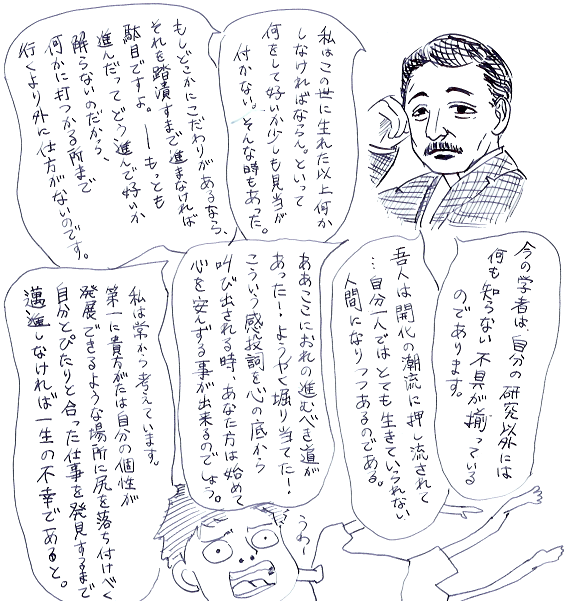 私はこの世に生れた以上何か
しなければならん。といって
何をして好いか少しも見当が
付かない。そんな時もあった。
もしどこかにこだわりがあるなら、
それを踏潰すまで進まなければ
駄目ですよ。――もっとも
進んだってどう進んで好いか
解らないのだから、
何かに打つかる所まで
行くより外に仕方がないのです。
今の学者は、自分の研究以外には
何も知らない不具が揃っている
のであります。
吾人は開化の潮流に押し流されて
…自分一人ではとても生きていられない
人間になりつつあるのである。
ああここにおれの進むべき道が
あった！ようやく掘り当てた！
こういう感投詞を心の底から
叫び出される時、あなた方は始めて
心を安んずる事が出来るのでしょう。
私は常から考えています。
第一に貴方がたは自分の個性が
発展できるような場所に尻を落ち付けべく
自分とぴたりと合った仕事を発見するまで
邁進しなければ一生の不幸であると。
うわー